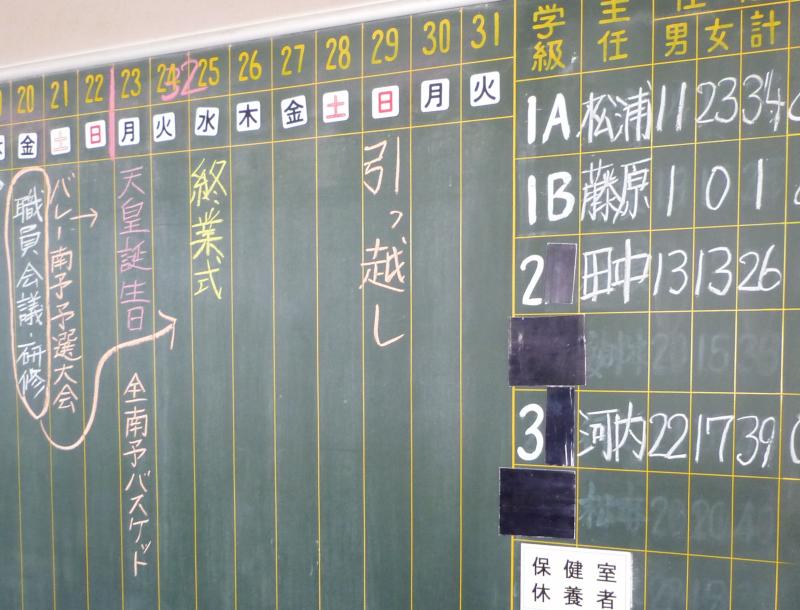 20 21 22 23 24 25 26 27 28 29 30 31
金 土 日 月 火 水 木 金 土 日 月 火
32
職員会議・研修
バレー南予予選大会
天皇誕生日
全南予バスケット
終業式
引っ越し
学級 主任 男 女 計
1A 松浦 11 23 34
1B 藤原 1 0 1
2 田中 13 13 26
3 河内 22 17 39
保健室
休養者